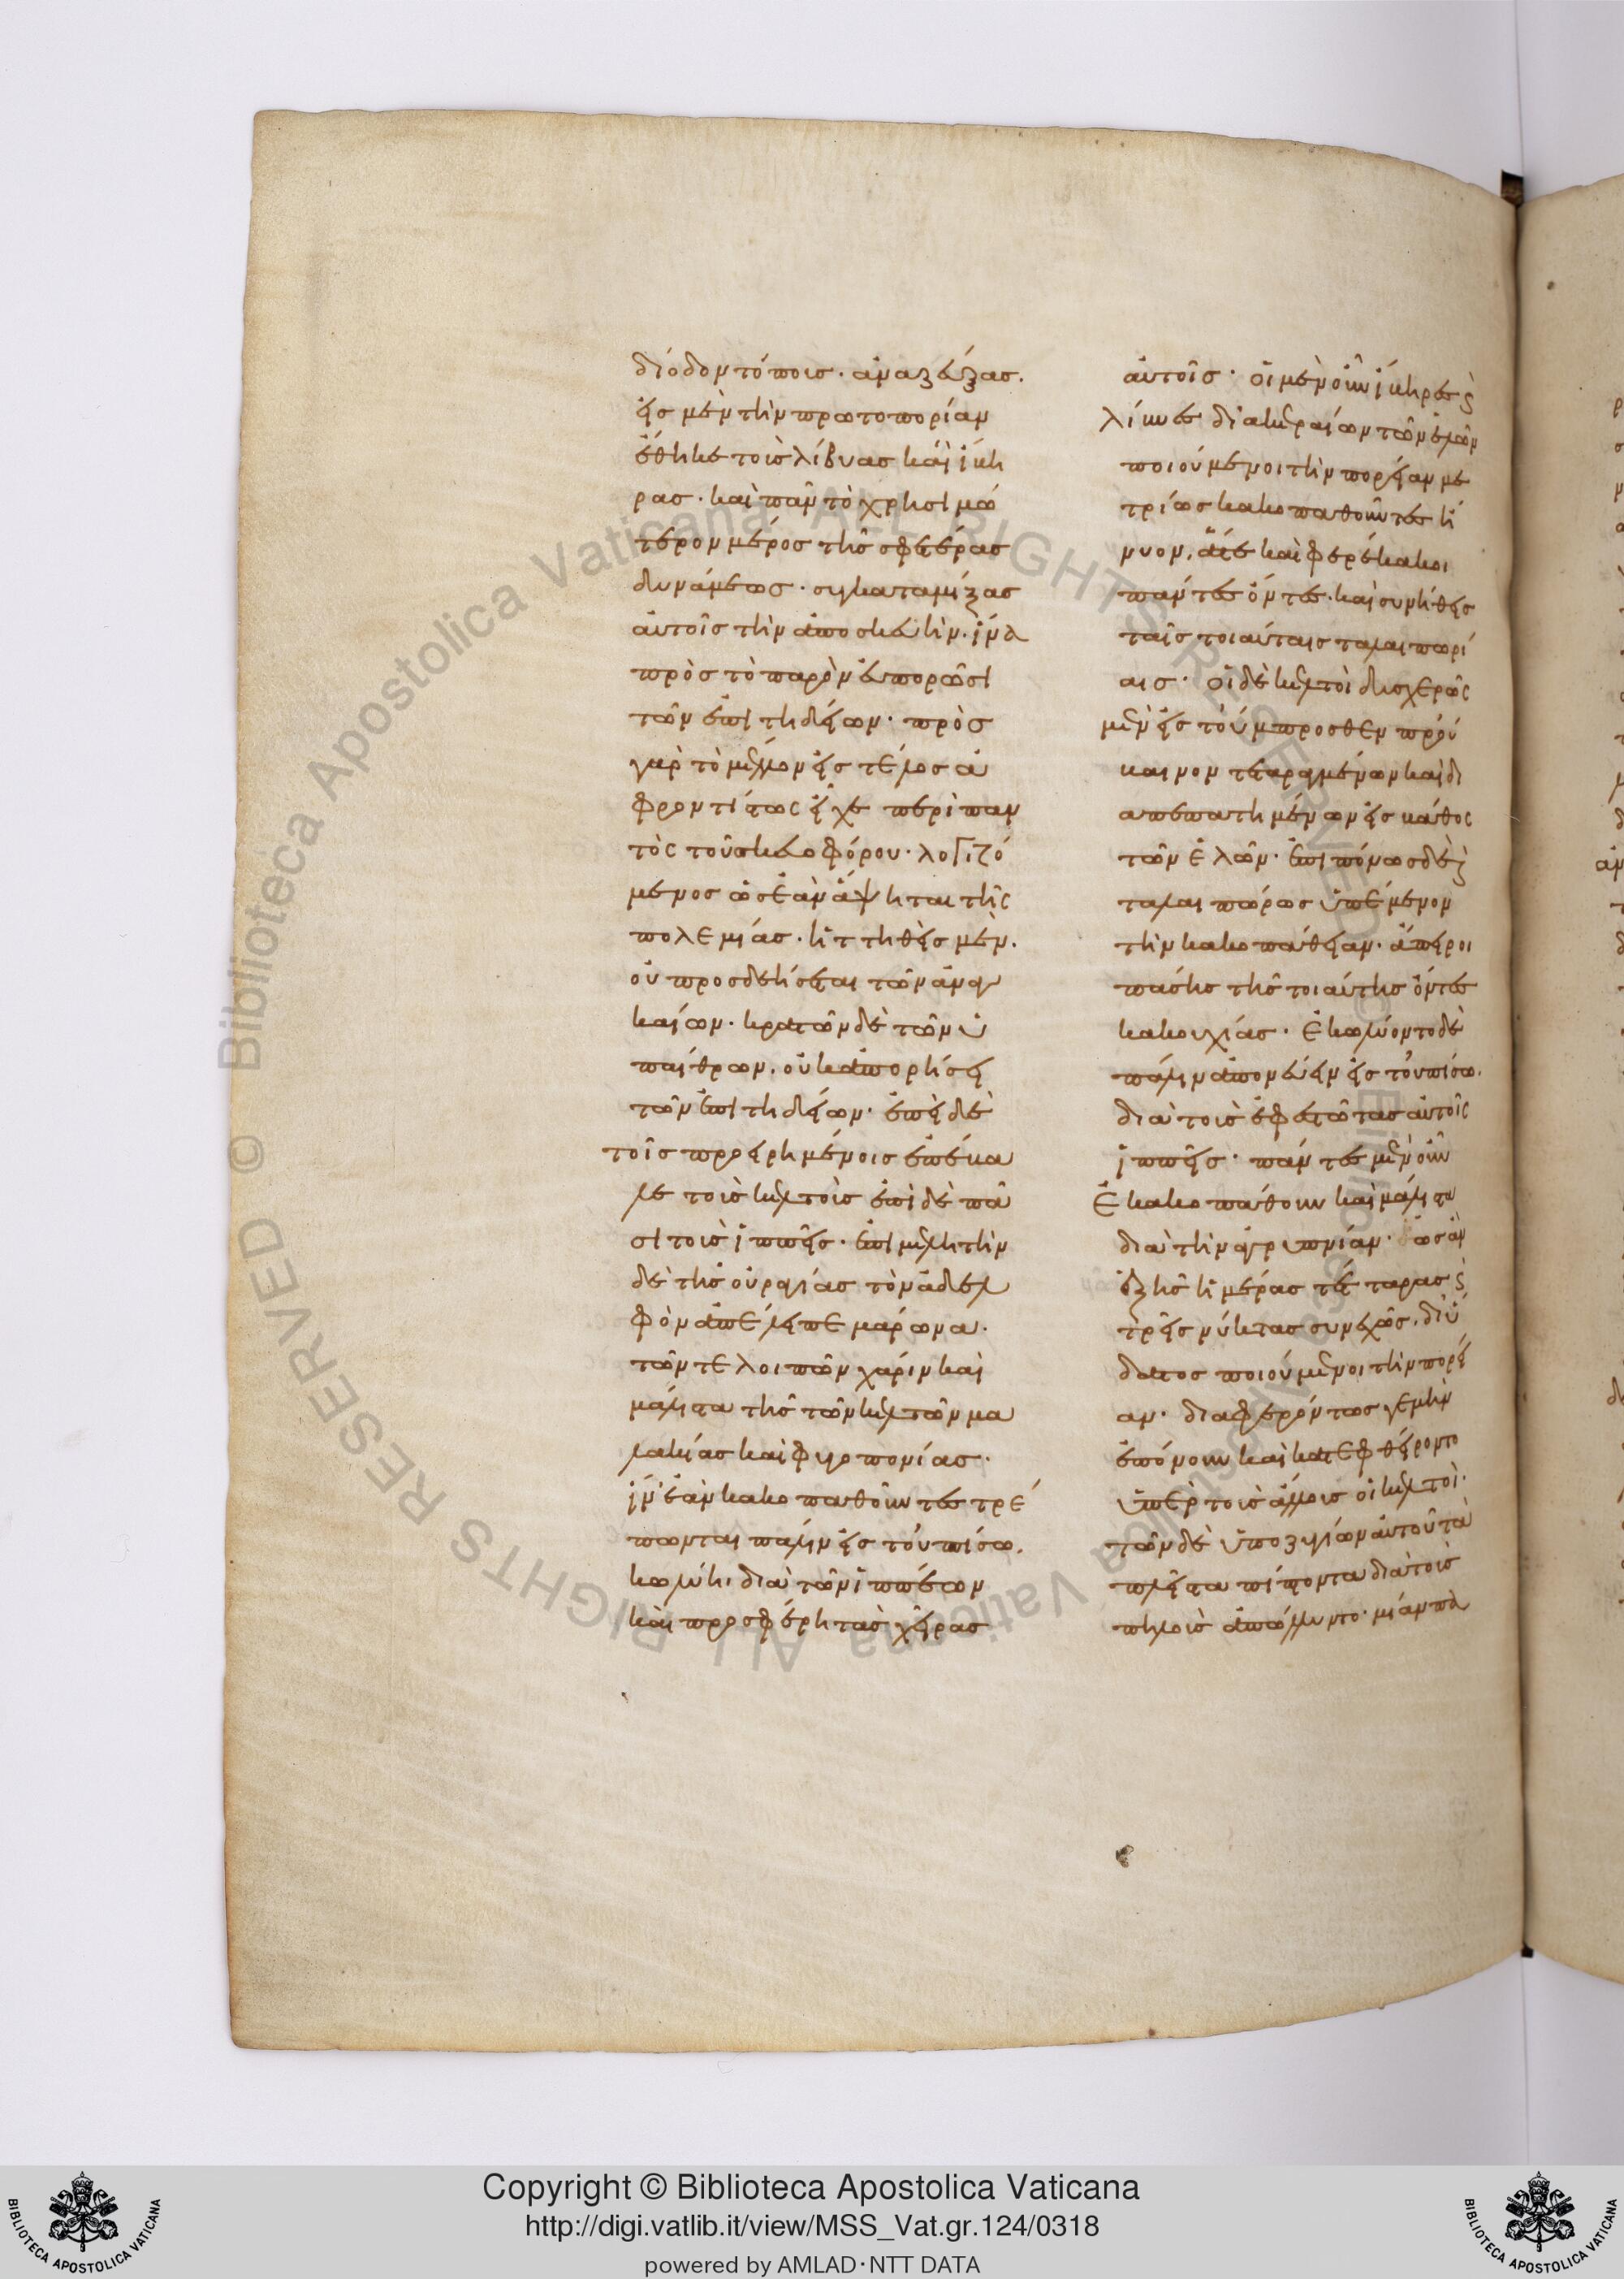 δίοδον τόποις· ἀναζεύξας.
εἰς μὲν τὴν πρωτοπορίαν
ἔθηκε τοὺς λίβυας καὶ ἴβη
ρας· καὶ πᾶν τὸ χρησιμώ
τερον μέρος τῆς σφετέρας
δυνάμεως· συγκαταμίξας
αὐτοῖς τὴν ἀποσκευὴν· ἵνα
πρὸς τὸ παρὸν εὐπορῶσι
τῶν ἐπιτηδείων· πρὸς
γὰρ τὸ μέλλον εἰς τέλος ἀ
φροντίστως εἶχε περὶ παν
τὸς τοῦ σκευοφόρου· λογιζό
μενος ὡς ἐὰν ἅψηται τῆς
πολεμίας· ἡττηθεὶς μὲν.
οὐ προσδεήσεται τῶν ἀναγ
καίων· κρατῶν δὲ τῶν ὑ
παίθρων. οὐκ ἀπορήσει
τῶν ἐπιτηδείων· ἐπεὶ δὲ
τοῖς προειρημένοις ἐπέβα
λε τοὺς κελτοὺς ἐπὶ δὲ πᾶ
σι τοὺς ἱππεῖς· ἐπιμελητὴν
δὲ τῆς οὐραγίας τὸν ἀδελ
φὸν ἀπέλειπε μάγωνα·
τῶν τε λοιπῶν χάριν καὶ
μάλιστα τῆς τῶν κελτῶν μα
λακίας καὶ φυγοπονίας·
ἵν' ἐὰν κακοπαθοῦντες τρέ
πωνται πάλιν εἰς τοὐπίσω.
κωλύηι διὰ τῶν ἱππέων
καὶ προσφέρη τὰς χεῖρας
αὐτοῖς· οἱ μὲν οὖν ἴβηρες καὶ
λίβυες δι' ἀκεραίων τῶν ἑλῶν
ποιούμενοι τὴν πορείαν με
τρίως κακοπαθοῦντες ἤ
νυον. ἅτε καὶ φερέκακοι
πάντες ὄντες· καὶ συνήθεις
ταῖς τοιαύταις ταλαιπωρί
αις· οἱ δὲ κελτοὶ δυσχερῶς
μὲν εἰς τοὔμπροσθεν πρού
βαινον τεταραγμένων καὶ δι
απεπατημένων εἰς βάθος
τῶν ἑλῶν· ἐπιπόνως δὲ καὶ
ταλαιπώρως ὑπέμενον
τὴν κακοπάθειαν· ἄπειροι
πάσης τῆς τοιαύτης ὄντες
κακουχίας· ἐκωλύοντο δὲ
πάλιν ἀπονεύειν εἰς τοὐπίσω.
διὰ τοὺς ἐφεστῶτας αὐτοῖς
ἱππεῖς· πάντες μὲν οὖν
ἐκακοπάθουν καὶ μάλιστα
διὰ τὴν ἀγρυπνίαν· ὡς ἂν
ἑξῆς ἡμέρας τέτταρας καὶ
τρεῖς νύκτας συνεχῶς. δι' ὕ
δατος ποιούμενοι τὴν πορεί
αν· διαφερόντως γε μὴν
ἐπόνουν καὶ κατεφθείροντο
ὑπὲρ τοὺς ἄλλους οἱ κελτοὶ·
τῶν δὲ ὑποζυγίων αὐτοῦ τὰ
πλεῖστα πίπτοντα διὰ τοὺς
πηλοὺς ἀπώλλυντο· μίαν πα